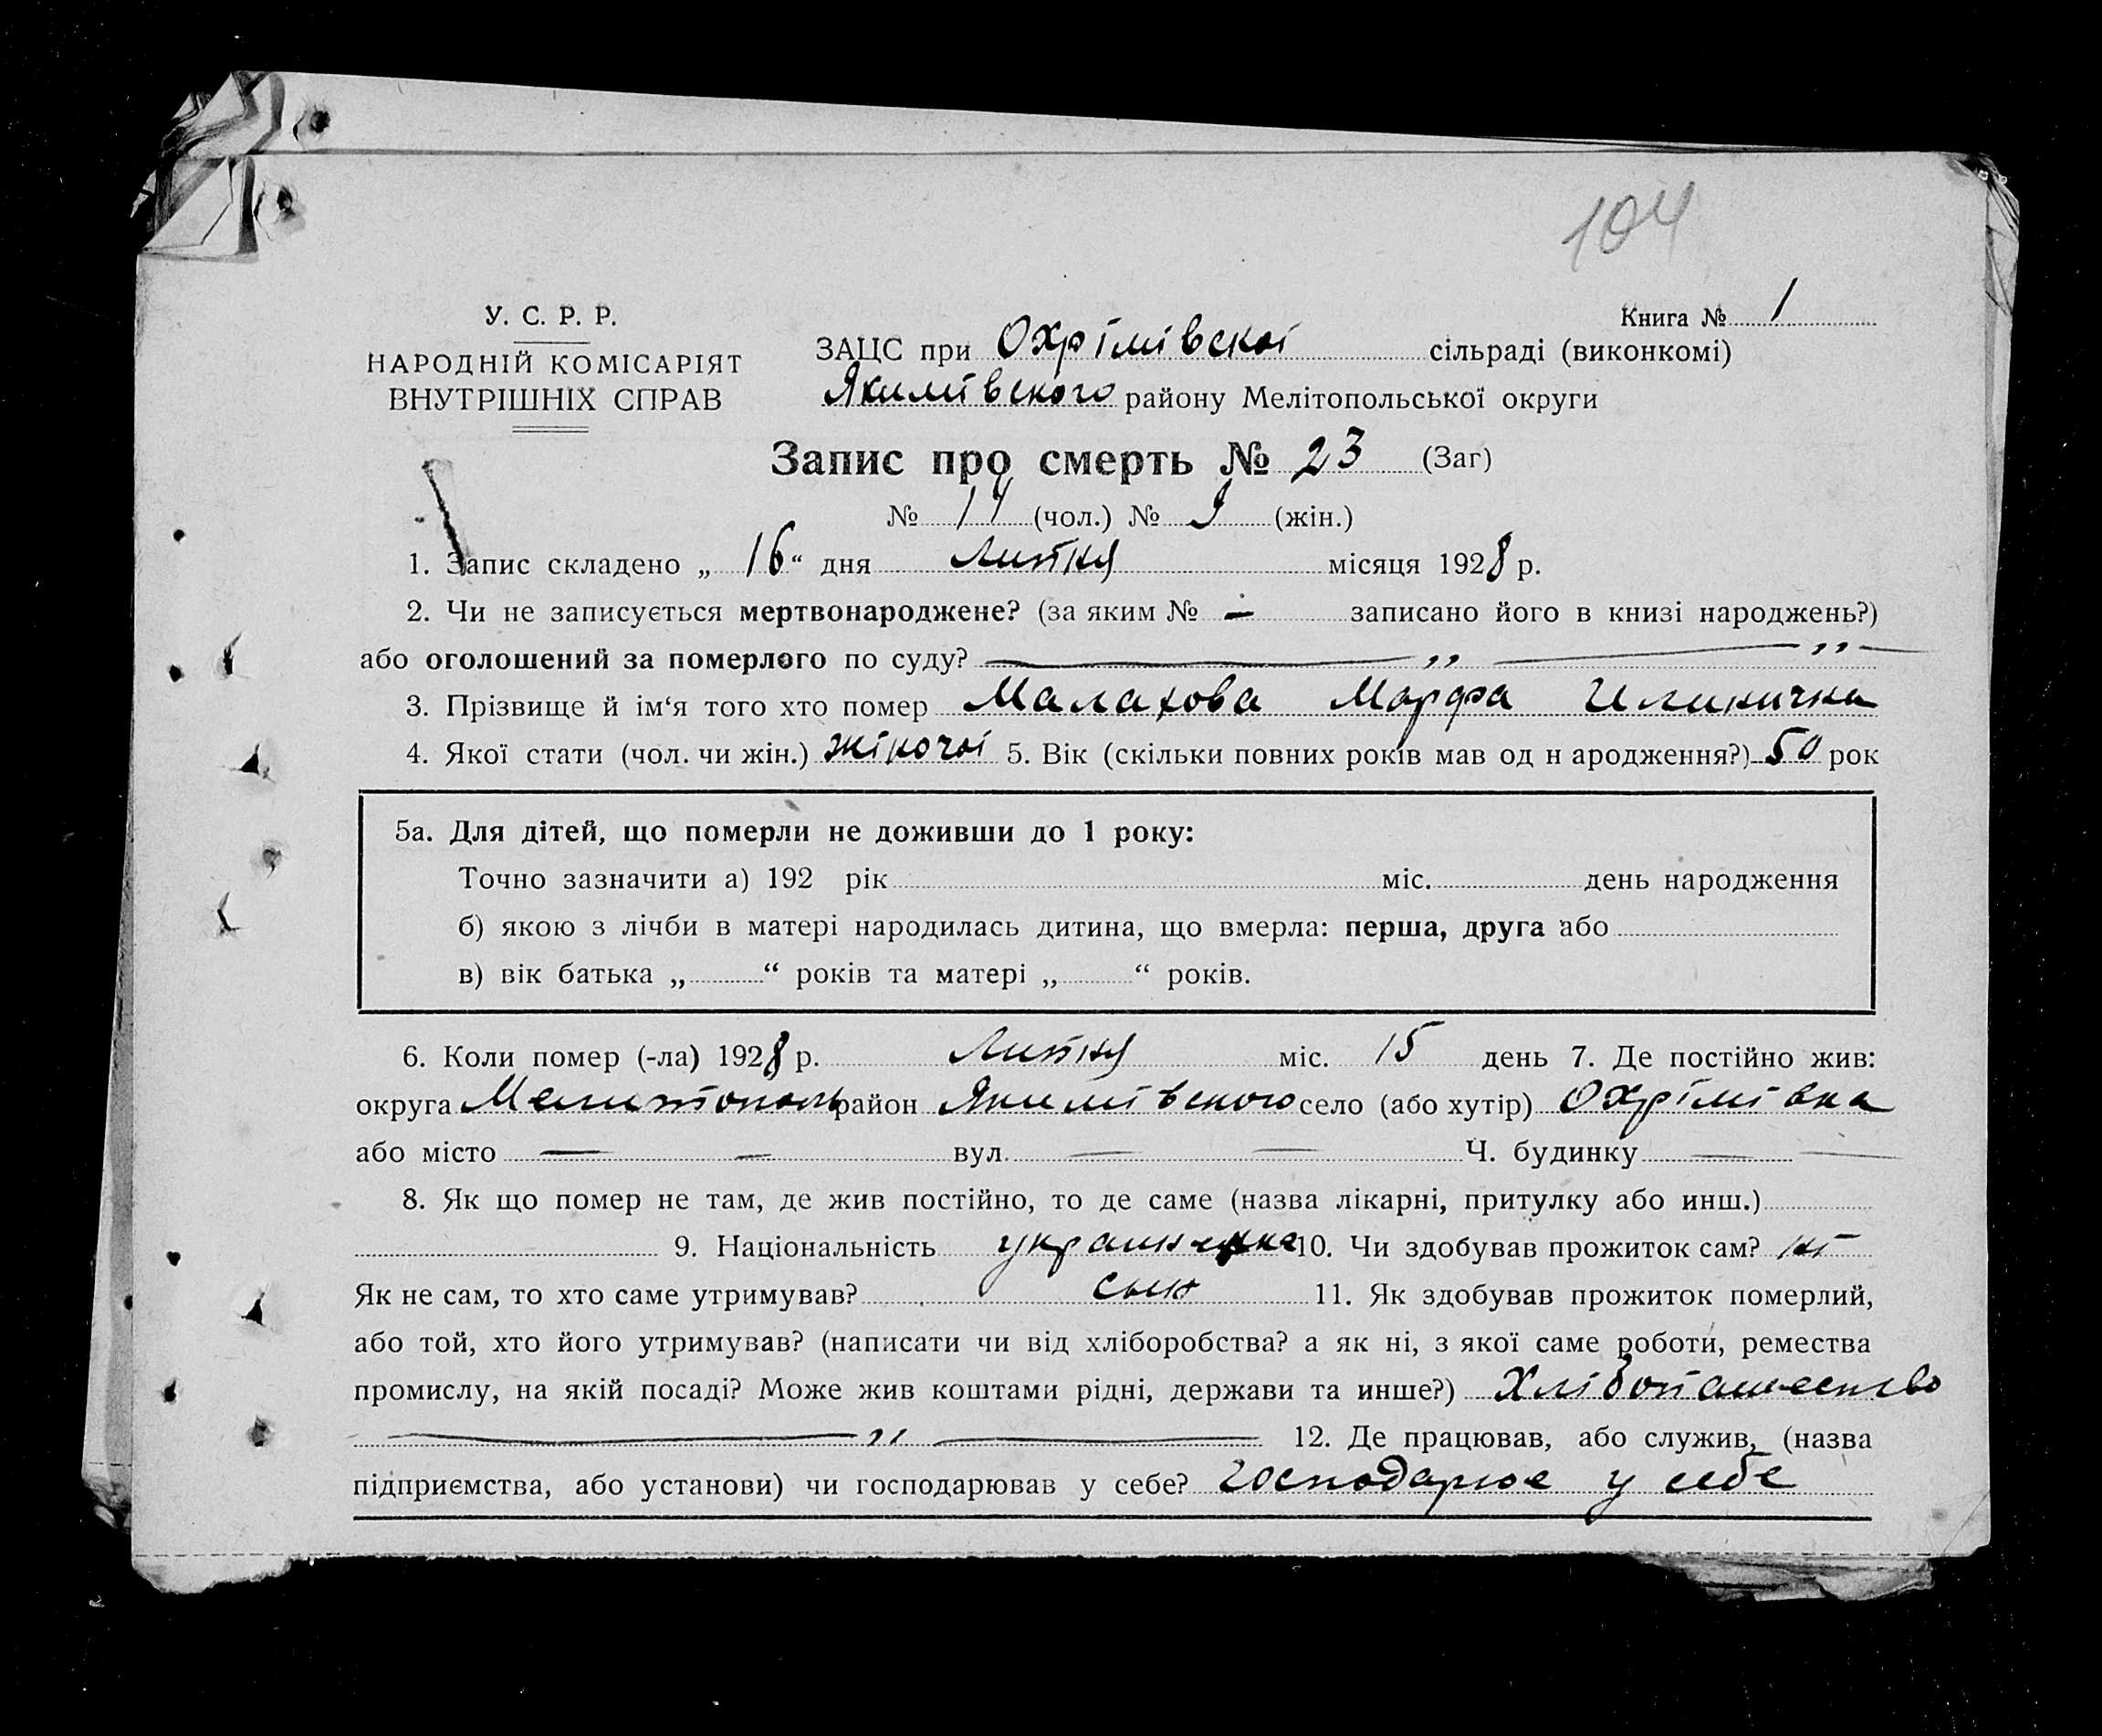 104
У. С. Р. Р.
НАРОДНІЙ КОМІСАРІЯТ
ВНУТРІШНІХ СПРАВ
Книга № 1
ЗАЦС при Охрімівскоі сільраді (виконкомі)
Якимівского району Мелітопольської округи
Запис про смерть № 23 (Заг)
№ 14 (чол.) № 9 (жін.)
1. Запис складено „ 16 “ дня Липня місяця 1928 р.
2. Чи не записується мертвонароджене? (за яким № – записано його в книзі народжень?)
або оголошений за померлого по суду? — „ — „ —
3. Прізвище й ім‘я того хто помер Малахова Марфа
4. Якої стати (чол. чи жін.) жіночоі 5. Вік (скільки повних років мав од н ародження?) 50 рок
5а. Для дітей, що померли не доживши до 1 року:
Точно зазначити а) 192 рік міс. день народження
б) якою з лічби в матері народилась дитина, що вмерла: перша, друга або
в) вік батька „ “ років та матері „ “ років.
6. Коли помер (-ла) 1928 р. Липня міс. 15 день 7. Де постійно жив:
округа Мелитополь район Якимівского село (або хутір) Охрімівка
або місто — — вул. — — Ч. будинку — —
8. Як що помер не там, де жив постійно, то де саме (назва лікарні, притулку або инш.)
9. Національність 10. Чи здобував прожиток сам? ні
Як не сам, то хто саме утримував? сын 11. Як здобував прожиток померлий,
або той, хто його утримував? (написати чи від хліборобства? а як ні, з якої саме роботи, ремества
промислу, на якій посаді? Може жив коштами рідні, держави та инше?) Хлібопашество
— „ — 12. Де працював, або служив, (назва
підприємства, або установи) чи господарював у себе? господарює у себе